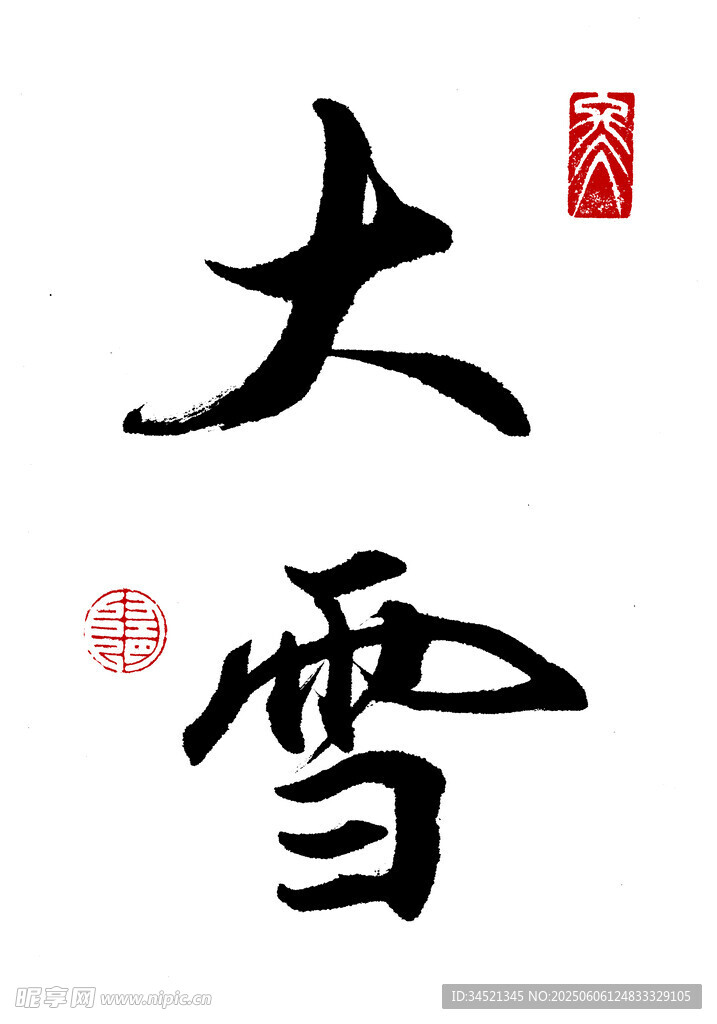 大雪
昵享网 www.nipic.cn
ID:34521345 NO:20250606124833329105